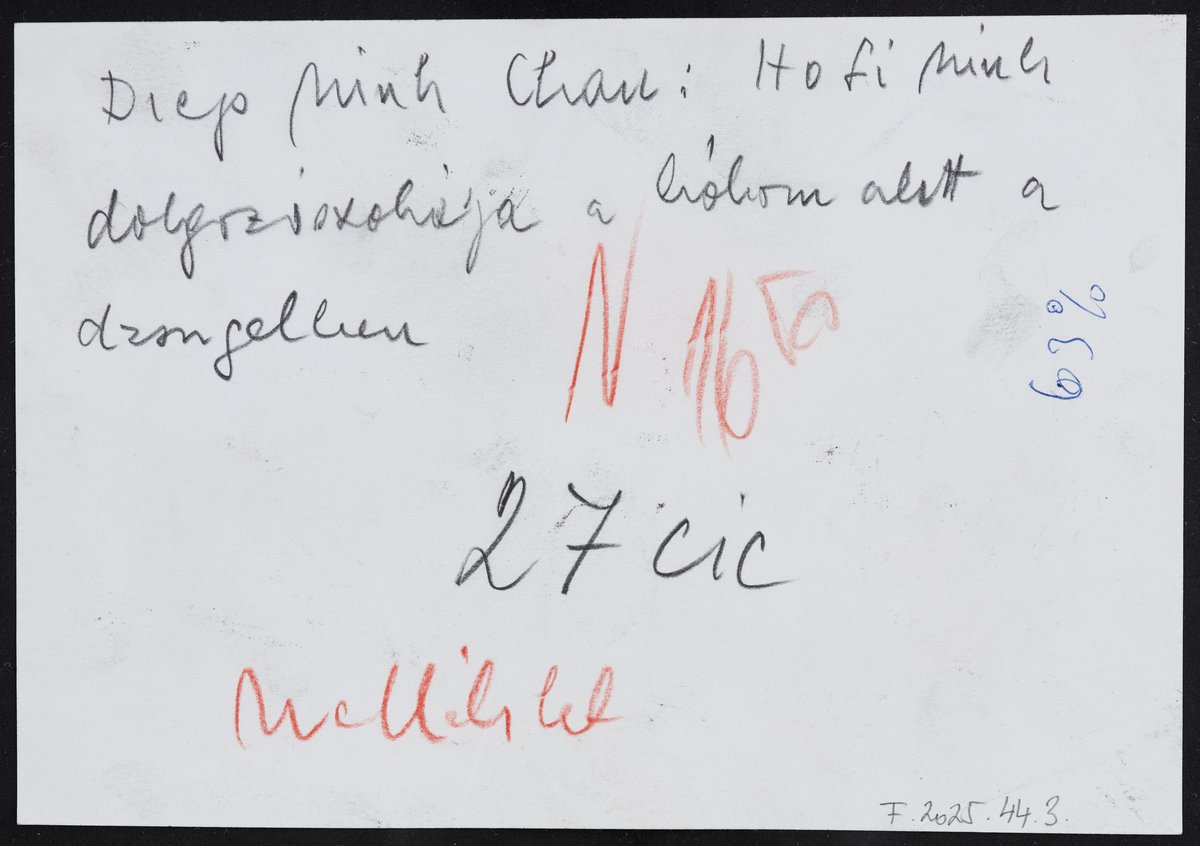 Diep Minh Chau: Ho Si Minh
dolgozószobája a háború alatt a
dzsungelben
N 16
63%
27 cic
Melléklet
F.2025.44.3.